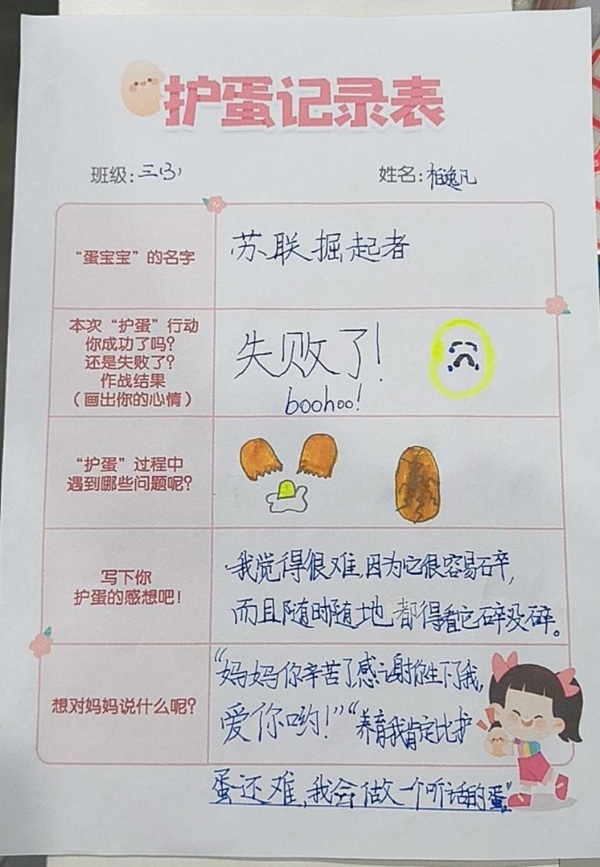 护蛋记录表
班级:三(3)
姓名:柏逸凡
“蛋宝宝”的名字
苏联掘起者
本次“护蛋”行动
你成功了吗?
还是失败了?
作战结果
(画出你的心情)
失败了!
boohoo!
“护蛋”过程中
遇到哪些问题呢?
写下你
护蛋的感想吧!
我觉得很难,因为它很容易碎,
而且随时随地都得看它碎没碎。
想对妈妈说什么呢?
“妈妈你辛苦了感谢你生下了我,
爱你哟!”“养育我肯定比护
蛋还难,我会做一个听话的蛋”